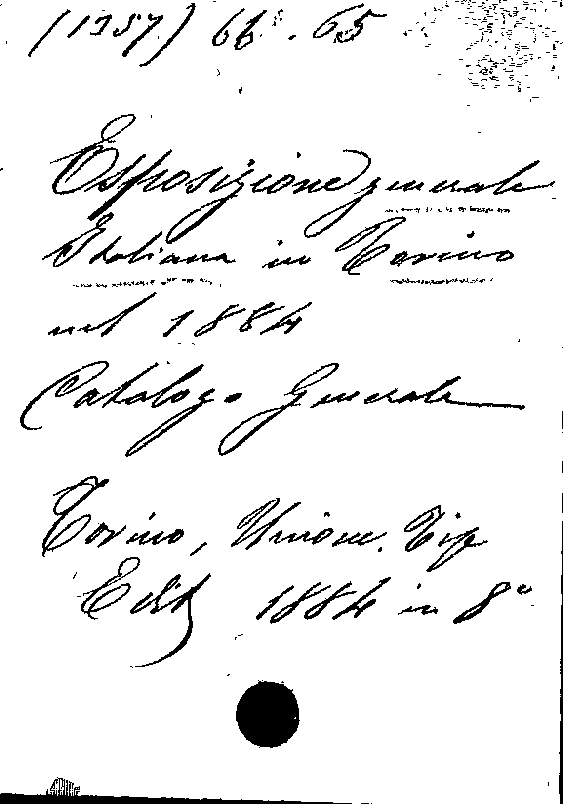 (1357) 66. 65
Esposizione generale
Italiana in Torino
nel 1884
Catalogo Generale
Torino, Unione. Tip
Edit 1884 in 8°